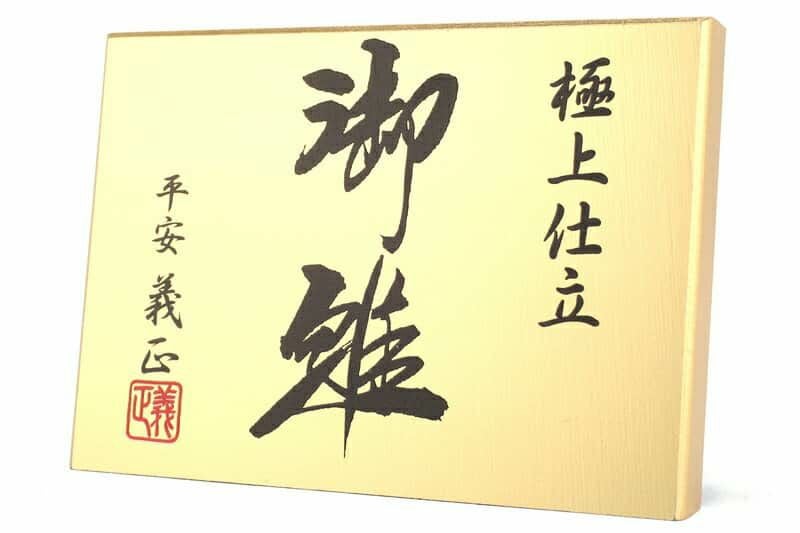 極上仕立
御雛
平安 義正
義正